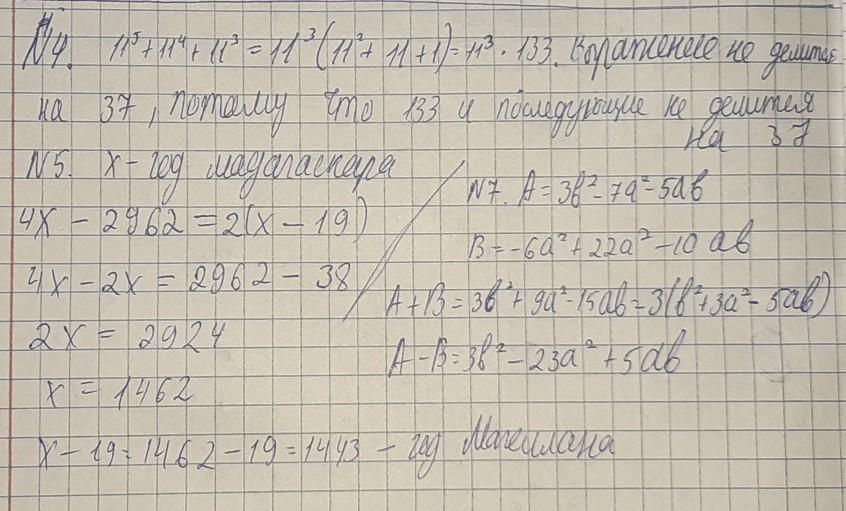 №4. 11⁵+11⁴+11³ = 11³(11²+11+1)=11³·133. Выражение не делится
на 37, потому что 133 и последующие не делится
на 37
№5. x - год мадагаскара
4x - 2962 = 2(x - 19)
4x - 2x = 2962 - 38
2x = 2924
x = 1462
x - 19 = 1462 - 19 = 1443 - год Магеллана
№7. A = 3b² - 7a² - 5ab
B = -6a² + 22a² - 10ab
A + B = 3b² + 9a² - 15ab = 3(b² + 3a² - 5ab)
A - B = 3b² - 23a² + 5ab